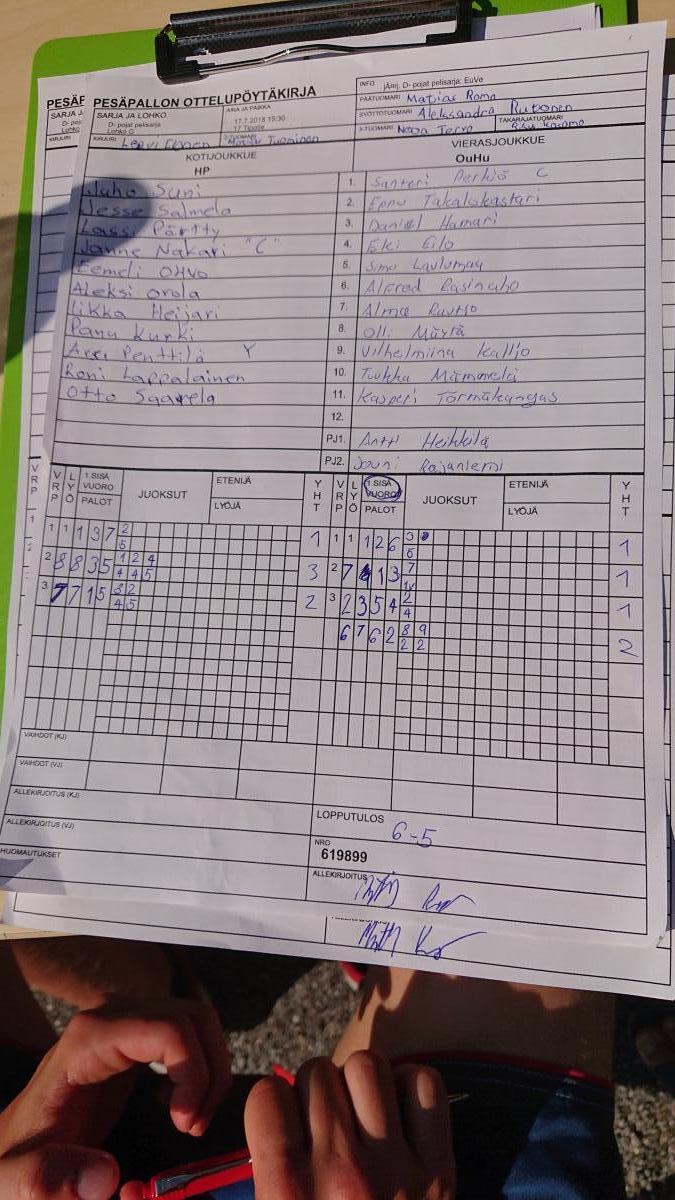 PESÄPALLON OTTELUPÖYTÄKIRJA
INFO jÄrrj. D- pojat pelisarja: EuVe
SARJA JA LOHKO
D- pojat pelisarja
Lohko G
AIKA JA PAIKKA
17.7.2018 15:30
17.Tipotie
PÄÄTUOMARI Matias
SYÖTTÖTUOMARI Aleksandra Rutonen
KIRJURI
2-TUOMARI Tuominen
3-TUOMARI Nooa Tervo
TAKARAJATUOMARI
KOTIJOUKKUE
HP
VIERASJOUKKUE
OuHu
Juho Suni
1. Santeri Perkiö C
Jesse Salmela
2. Eppu Takalokastari
Lassi Pörtty
3. Daniel Hamari
Janne Nakari "C"
4. Eki Eilo
Eemeli Ohvo
5. Simo
Aleksi Orola
6. Alfred Rasinaho
Iikka Heijari
7. Alma Ruutjo
Panu Kurki
8. Olli Märtä
Penttilä Y
9. Vilhelmiina Kalljo
Roni Lappalainen
10. Tuukka Mämmelä
Otto Saarela
11. Kasperi Törmäkangas
12.
PJ1. Antti Heikkilä
PJ2. Jouni Rajaniemi
VRP LYÖ 1.SISÄ VUORO PALOT JUOKSUT ETENIJÄ LYÖJÄ YHT
VRP LYÖ 1.SISÄ VUORO PALOT JUOKSUT ETENIJÄ LYÖJÄ YHT
1 1 1 3 7 2 1
5
1 1 1 2 6 3 1
6
2 8 8 3 5 1 2 4 3
4 4 5
2 7 1 3 7 1
3 7 7 1 5 3 2 2
4 5
3 2 3 5 4 2 1
4
6 7 6 2 8 9 2
2 2
VAIHDOT (KJ)
VAIHDOT (VJ)
ALLEKIRJOITUS (KJ)
ALLEKIRJOITUS (VJ)
HUOMAUTUKSET
LOPPUTULOS
6-5
NRO
619899
ALLEKIRJOITUS